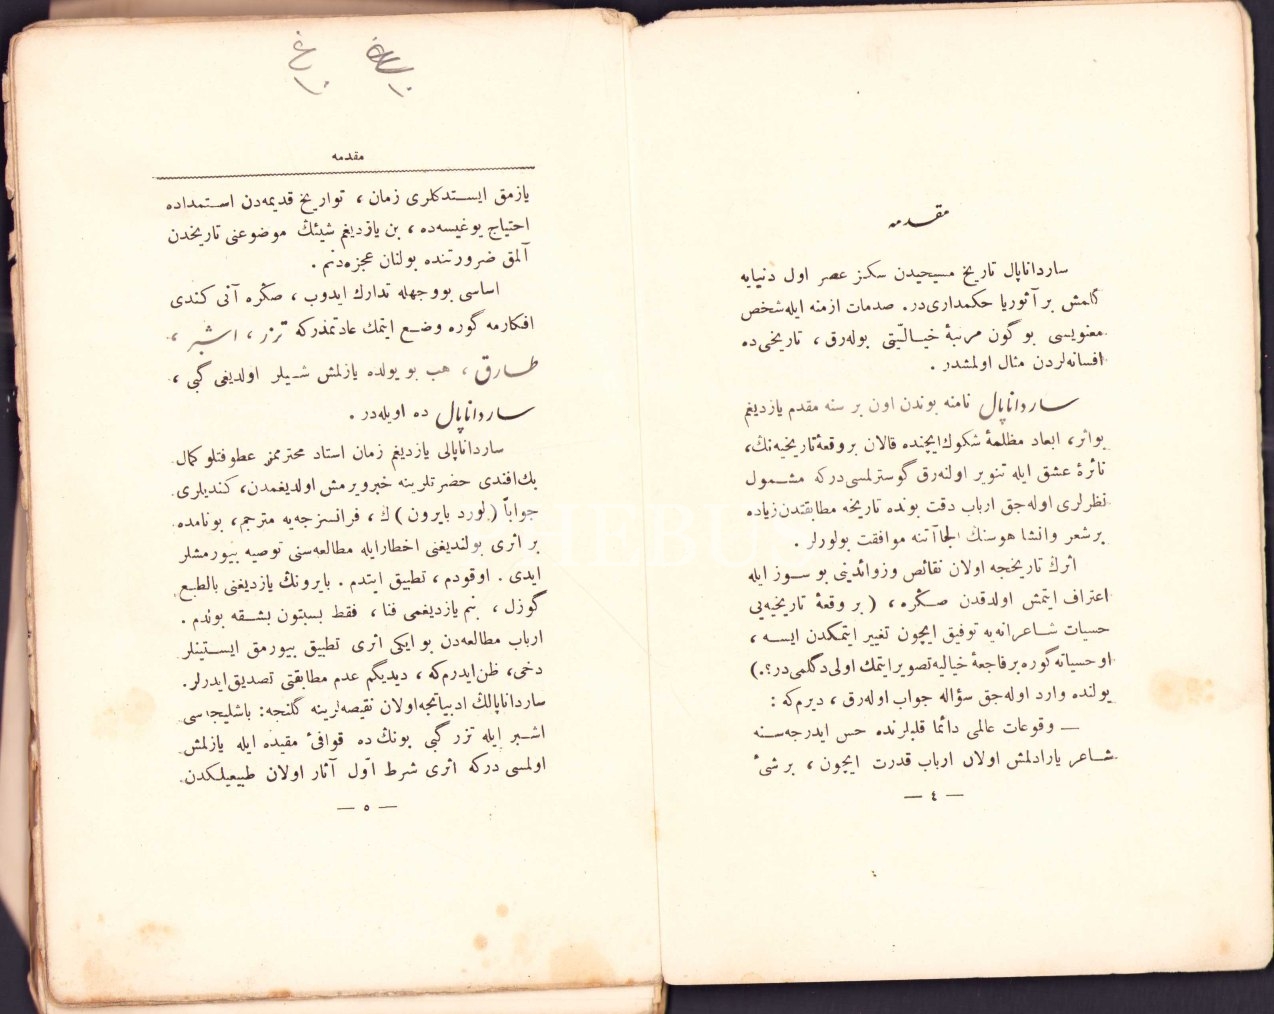 مقدمه
سارداناپال تاریخ مسیحیدن سکز عصر اول دنیایه
گلمش بر آثوریا حکمداری‌در. صدمات ازمنه ایله شخص
معنویسی بو گون مرتبهٔ خیالیّتی بوله‌رق ، تاریخی‌ده
افسانه‌لردن مثال اولمشدر .
سارداناپال نامنه بوندن اون بر سنه مقدم یازدیغم
بو اثر، ابعاد مظلمهٔ شکوك ایچنده قالان بر وقعهٔ تاریخیه‌نڭ،
نائرهٔ عشق ایله تنویر اولنه‌رق گوسترلمسی درکه مشمول
نظرلری اوله‌جق ارباب دقت بونده تاریخه مطابقتدن زیاده
بر شعر وانشا هوسنڭ الجاآتنه موافقت بولورلر .
اثرڭ تاریخجه اولان نقائص و زوائدینی بو سوز ایله
اعتراف ایتمش اولدقدن صڭره ، ( بر وقعهٔ تاریخیه‌یی
حسیات شاعرانه‌یه توفیق ایچون تغییر ایتمکدن ایسه ،
او حسیاته گوره بر فاجعهٔ خیالیه تصویر ایتمك اولی دگلمی‌در؟.)
یولنده وارد اوله‌جق سؤاله جواب اوله‌رق ، دیرم که :
— وقوعات عالمی دائما قلبلرنده حس ایدرجه‌سنه
شاعر یارادلمش اولان ارباب قدرت ایچون ، بر شیٔ
— ٤ —
مقدمه
یازمق ایستدکلری زمان ، تواریخ قدیمه‌دن استمداده
احتیاج یوغیسه‌ده ، بن یازدیغم شیئڭ موضوعنی تاریخدن
آلمق ضرورتنده بولنان عجزه‌دنم .
اساسی بووجهله تدارك ایدوب ، صڭره آنی کندی
افکارمه گوره وضع ایتمك عادتمدرکه تزر ، اشبر ،
طارق ، هب بو یولده یازلمش شیلر اولدیغی گبی ،
ساردانابال ده اویله‌در .
ساردانابالی یازدیغم زمان استاد محترممز عطوفتلو کمال
بك افندی حضرتلرینه خبر ویرمش اولدیغمدن، کندیلری
جواباً ( لورد بایرون ) ڭ ، فرانسزجه‌یه مترجم ، بو نامده
بر اثری بولندیغنی اخطار ایله مطالعه‌سنی توصیه بیورمشلر
ایدی . اوقودم ، تطبیق ایتدم . بایرونڭ یازدیغنی بالطبع
گوزل ، بنم یازدیغمی فنا ، فقط بسبتون بشقه بولدم .
ارباب مطالعه‌دن بو ایکی اثری تطبیق بیورمق ایستینلر
دخی، ظن ایدرم که ، دیدیگم عدم مطابقتی تصدیق ایدرلر.
ساردانابالڭ ادبیاتجه اولان نقیصه‌لرینه گلنجه : باشلیجه‌سی
اشبر ایله تزر گبی بونڭ ده قوافیٔ مقیده ایله یازلمش
اولمسی درکه اثری شرط اوّل آثار اولان طبیعیلکدن
— ٥ —